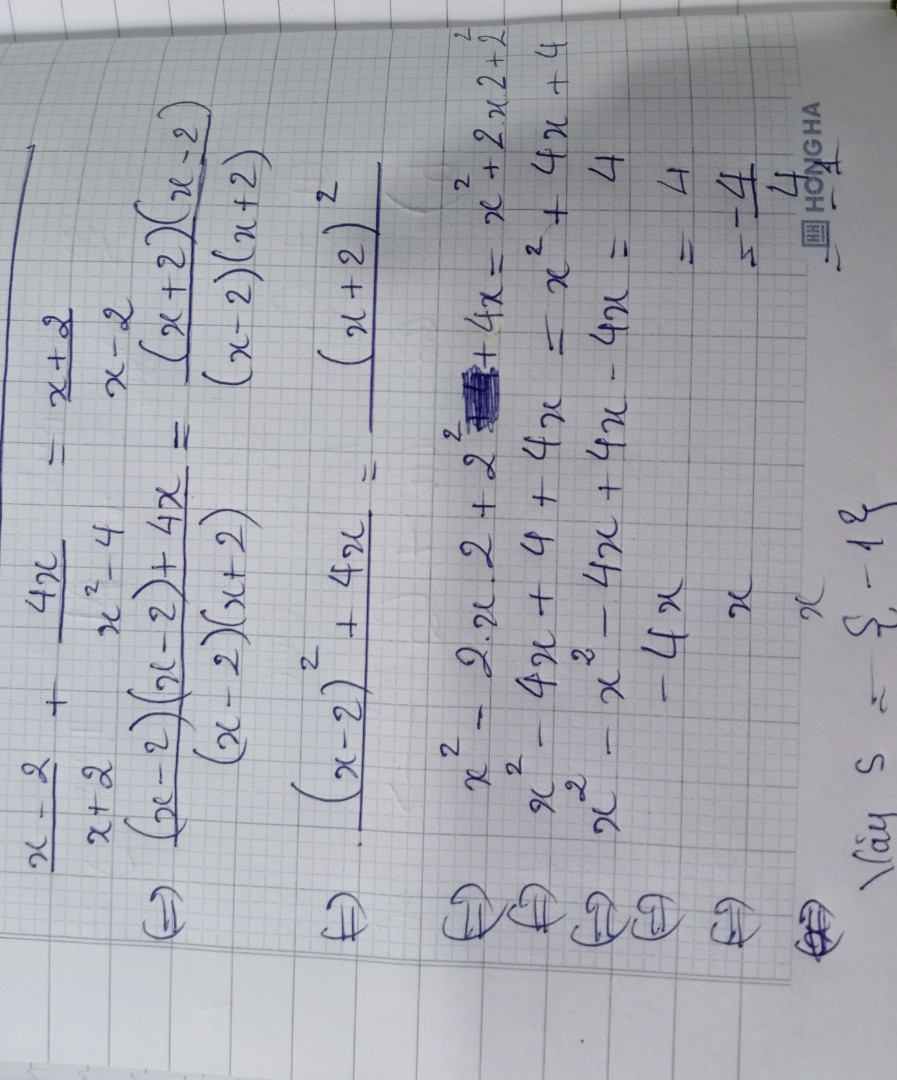 x-2/x+2 + 4x/x²-4 = x+2/x-2
(=) (x-2)(x-2)+4x/(x-2)(x+2) = (x+2)(x-2)/(x-2)(x+2)
(=) (x-2)² + 4x = (x+2)²
(=) x² - 2.x.2 + 2² + 4x = x² + 2.x.2 + 2²
(=) x² - 4x + 4 + 4x = x² + 4x + 4
(=) x² - x² - 4x + 4x - 4x = 4
(=) -4x = 4
(=) x = -4/4
x = -1
Vậy S = {-1}
HH HONG HA